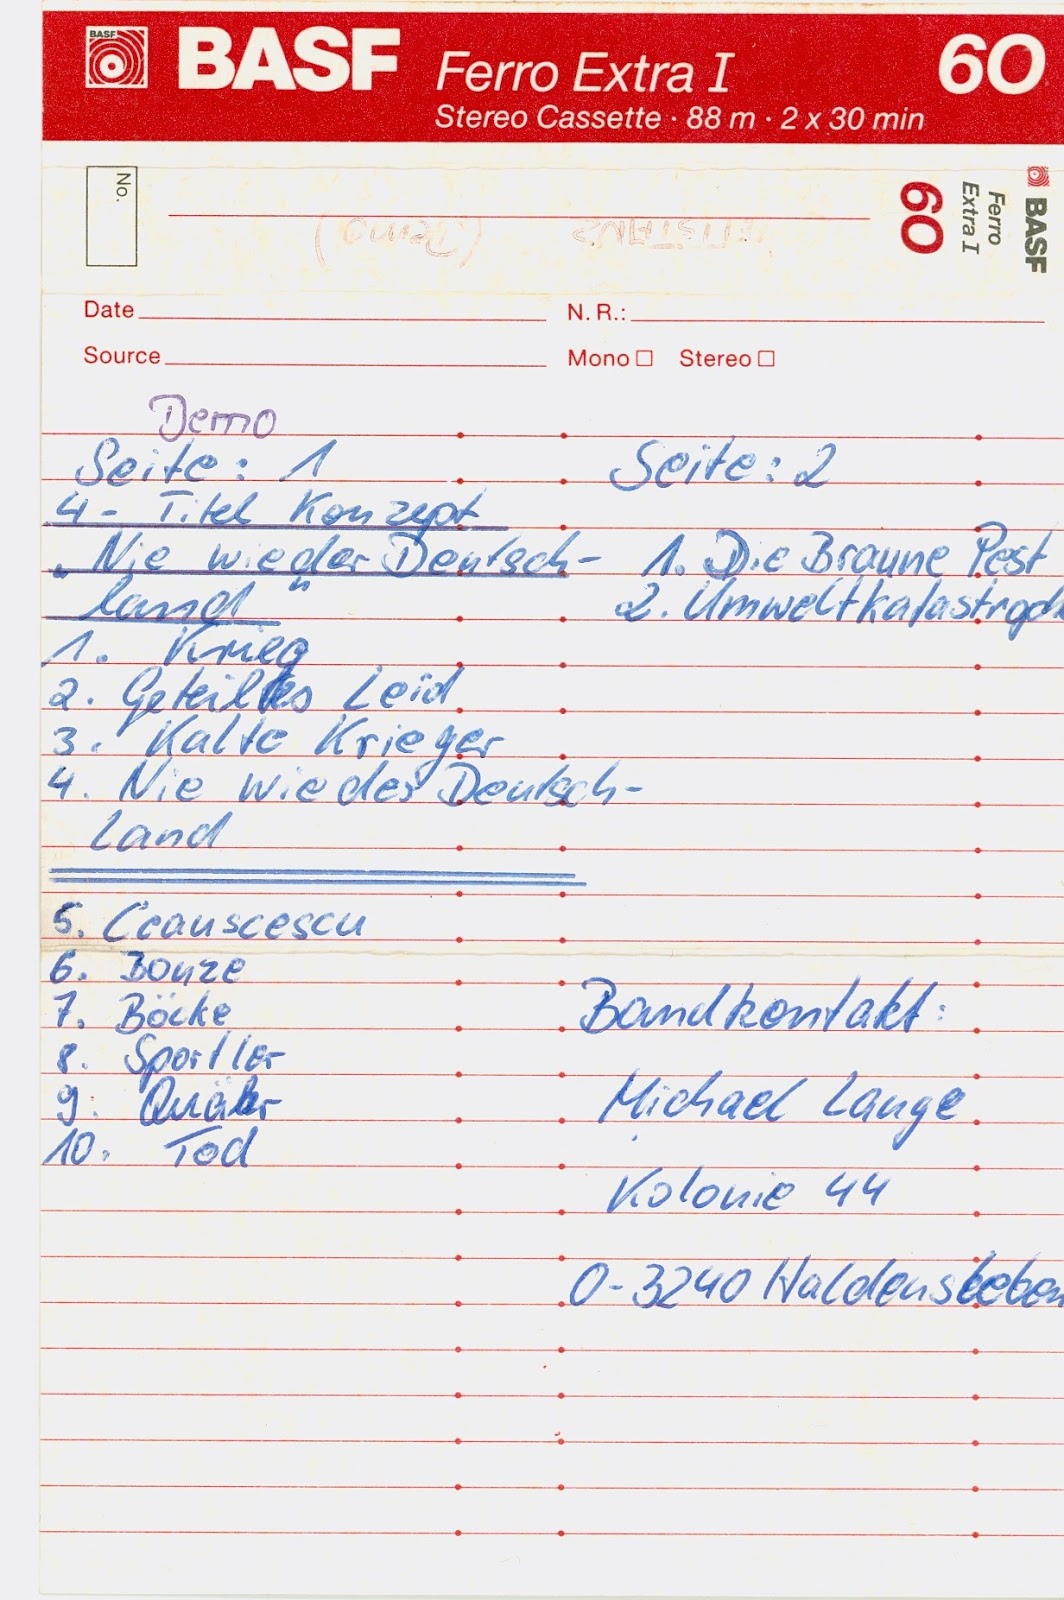 BASF
BASF Ferro Extra I 60
Stereo Cassette · 88 m · 2 x 30 min
No.
60
Ferro
Extra I
BASF
(Demo)
Date
N.R.:
Source
Mono Stereo
Demo
Seite: 1
4- Titel Konzept
„Nie wieder Deutsch-
land"
1. Krieg
2. Geteiltes Leid
3. Kalte Krieger
4. Nie wieder Deutsch-
Land
5. Ceauscescu
6. Bonze
7. Böcke
8. Sportler
9. Quäler
10. Tod
Seite: 2
1. Die Braune Pest
2. Umweltkatastroph
Bandkontakt:
Michael Lange
Kolonie 44
O-3240 Haldensleben